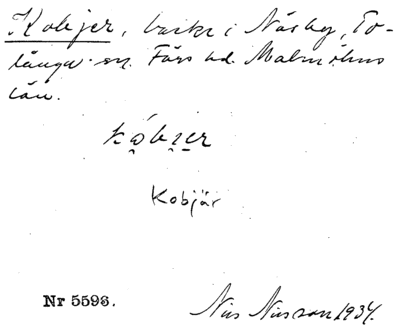 Kobjer, backe i Näsby, To-
långa sn. Färs hd. Malmöhus
län.
kobjer
Kobjär
Nr 5593.
Nils Nilsson 1934.